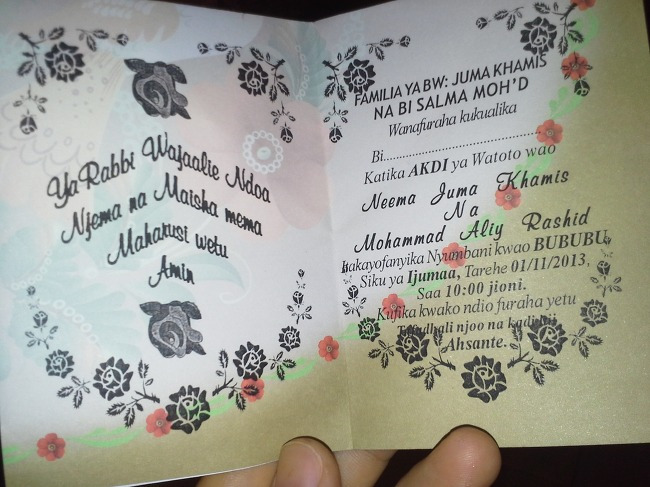 Ya Rabbi Wajaalie Ndoa
Njema na Maisha mema
Maharusi wetu
Amin
FAMILIA YA BW: JUMA KHAMIS
NA BI SALMA MOH'D
Wanafuraha kukualika
Bi..............................
Katika AKDI ya Watoto wao
Neema Juma Khamis
Na
Mohammad Aliy Rashid
itakayofanyika Nyumbani kwao BUBUBU
Siku ya Ijumaa, Tarehe 01/11/2013,
Saa 10:00 jioni.
Kufika kwako ndio furaha yetu
Tafadhali njoo na kadi hii
Ahsante.